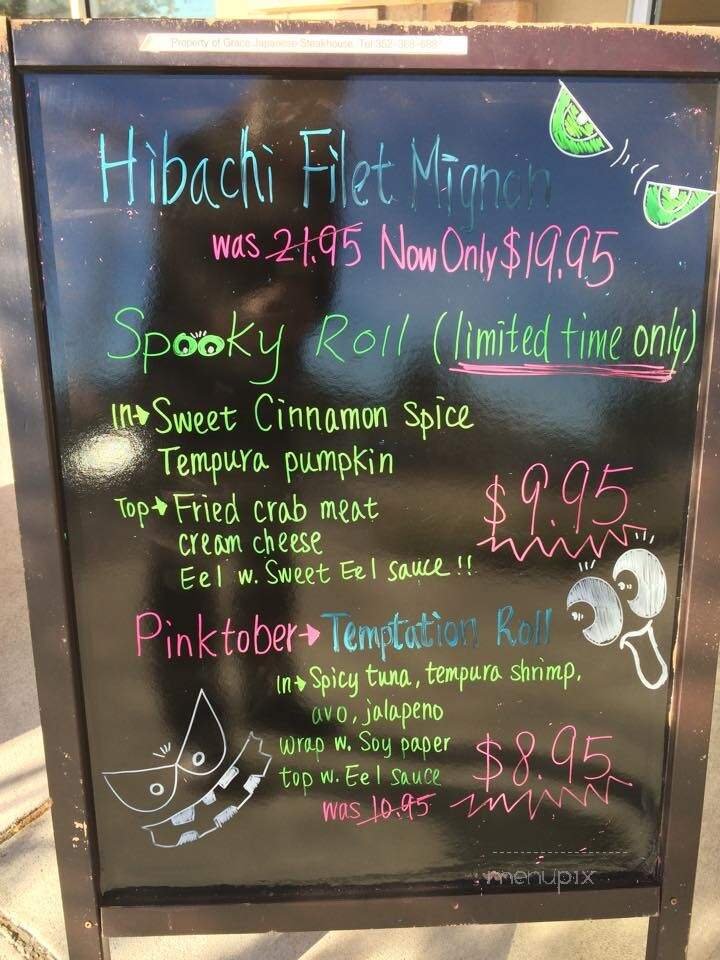 Property of Grace Japanese Steakhouse. Tel
Hibachi Filet Mignon
was 21.95 Now Only $19.95
Spooky Roll (limited time only)
In→ Sweet Cinnamon Spice
Tempura pumpkin
$9.95
Top→ Fried crab meat
cream cheese
Eel w. Sweet Eel sauce !!
Pinktober→ Temptation Roll
In→ Spicy tuna, tempura shrimp,
avo, jalapeno
wrap w. Soy paper
top w. Eel sauce
$8.95
was 10.95
menupix